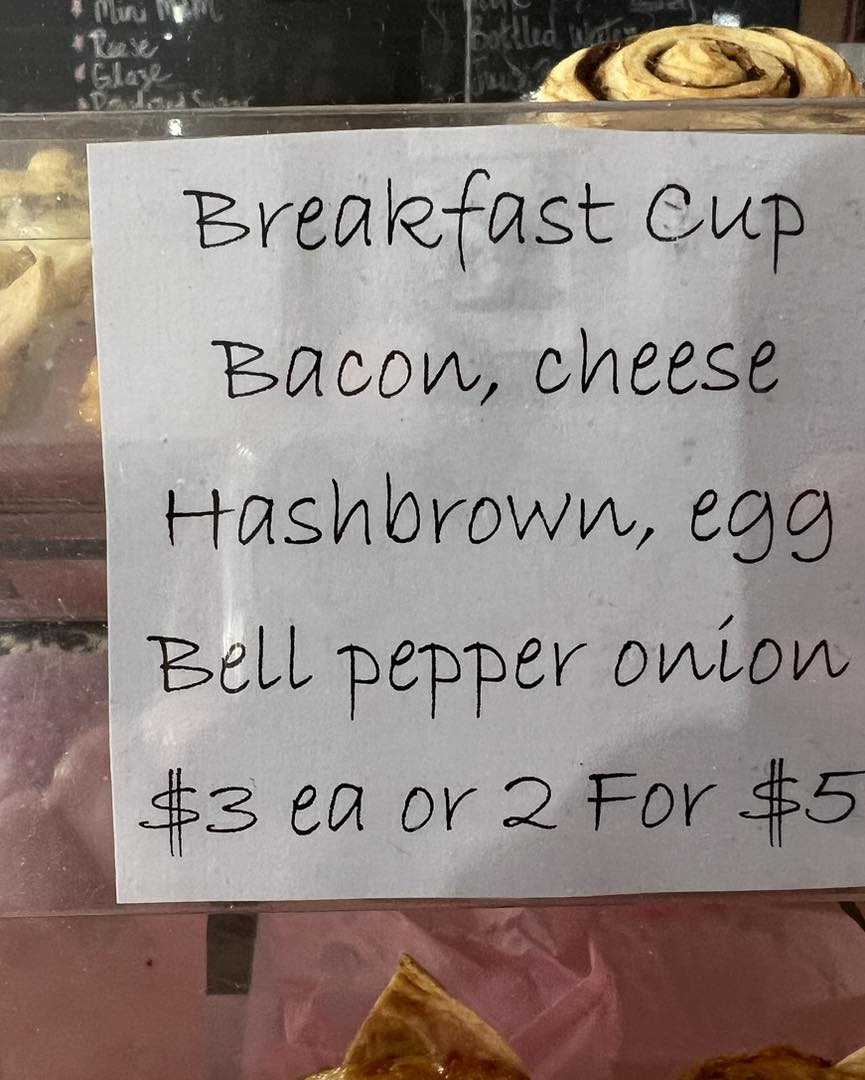 Mini M&M
Reese
Glaze
Powdered Sugar
Bottled Water
Breakfast Cup
Bacon, cheese
Hashbrown, egg
Bell pepper onion
$3 ea or 2 For $5